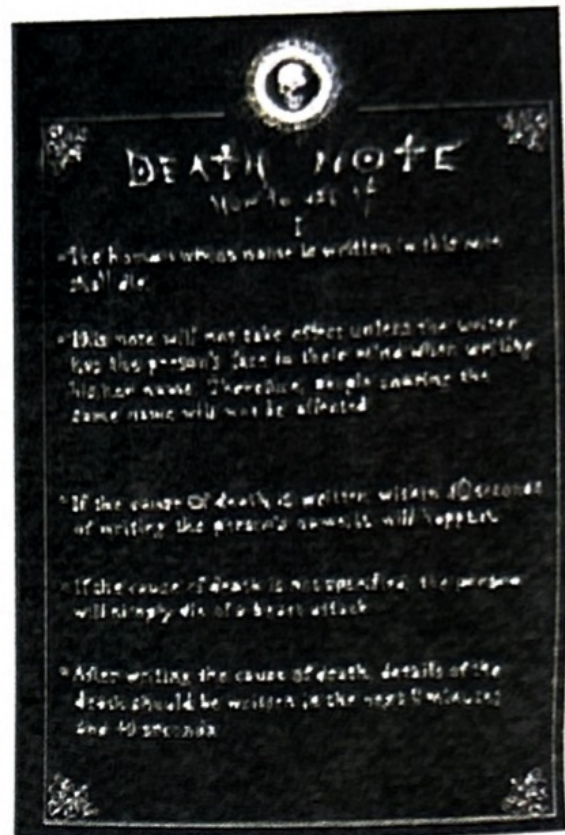 DEATH NOTE
How to use it
I
The human whose name is written in this note
shall die
This note will not take effect unless the writer
has the person's face in their mind when writing
his/her name. Therefore, people sharing the
same name will not be affected
If the cause of death is written within 40 seconds
of writing the person's name, it will happen
If the cause of death is not specified, the person
will simply die of a heart attack
After writing the cause of death, details of the
death should be written in the next minutes
and 40 seconds